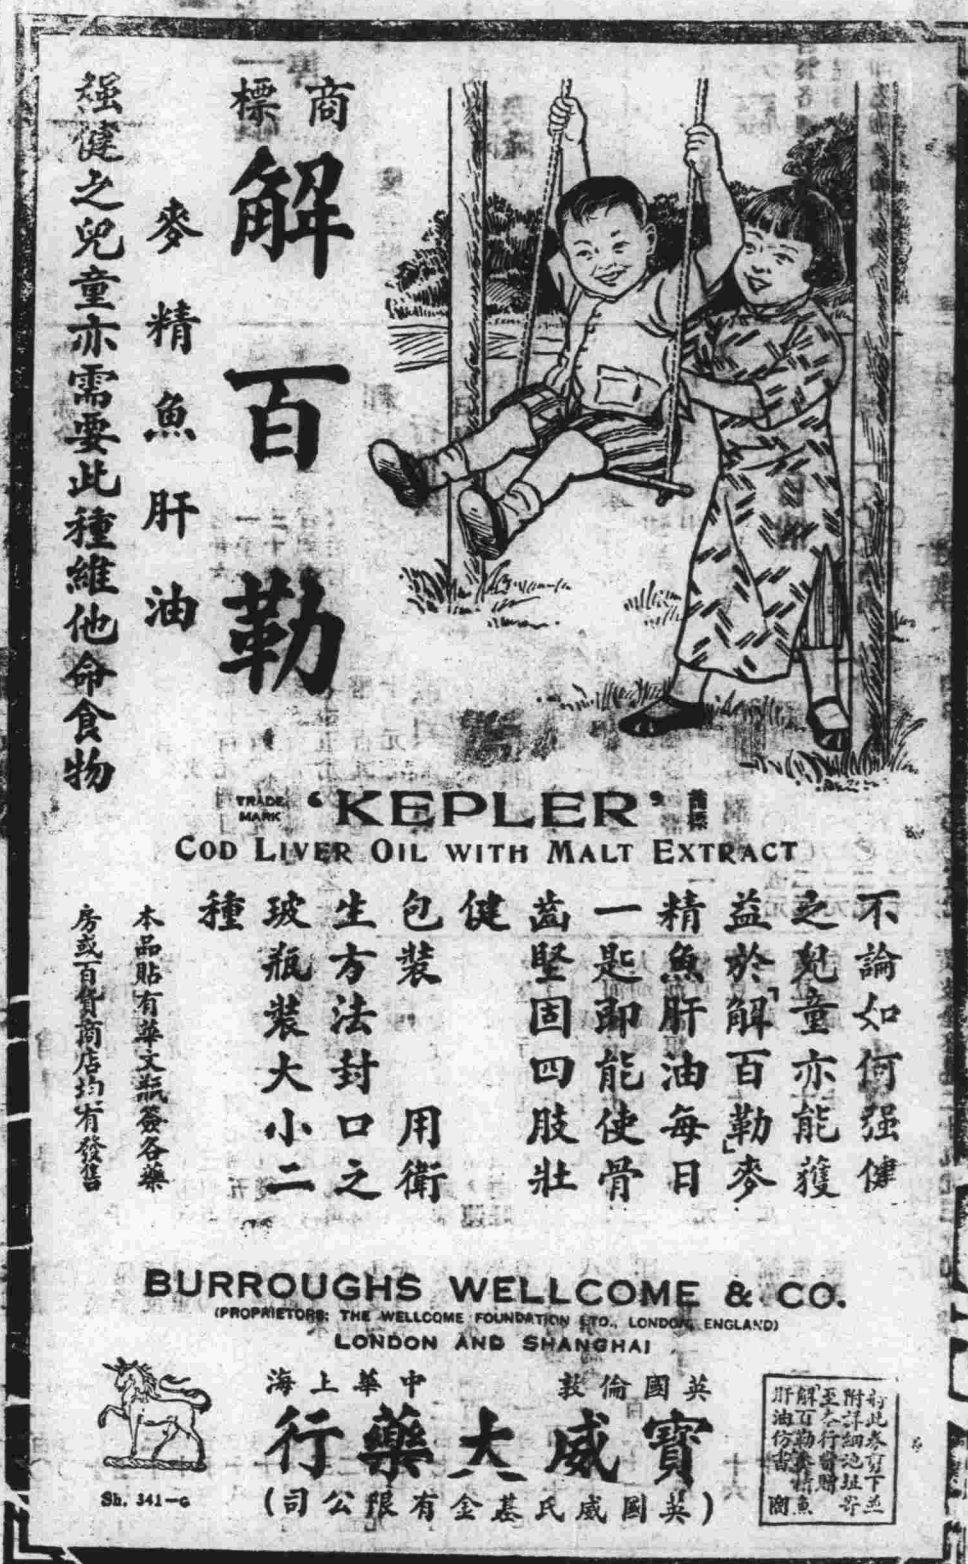 商標
解百勒
麥精魚肝油
强健之兒童亦需要此種維他命食物
TRADE MARK
'KEPLER'
商標
COD LIVER OIL WITH MALT EXTRACT
不論如何强健
之兒童亦能獲
益於「解百勒」麥
精魚肝油每日
一匙卽能使骨
齒堅固四肢壯
健
包裝用衛
生方法封口之
玻瓶裝大小二
種
本品貼有華文瓶簽各藥
房或百貨商店均有發售
BURROUGHS WELLCOME & CO.
(PROPRIETORS: THE WELLCOME FOUNDATION LTD., LONDON, ENGLAND)
LONDON AND SHANGHAI
英國倫敦 中華上海
寶威大藥行
(英國威氏基金有限公司)
Sh. 341-G
剪下並
附詳細地址寄
至本行當贈
解百勒麥精魚
肝油仿單